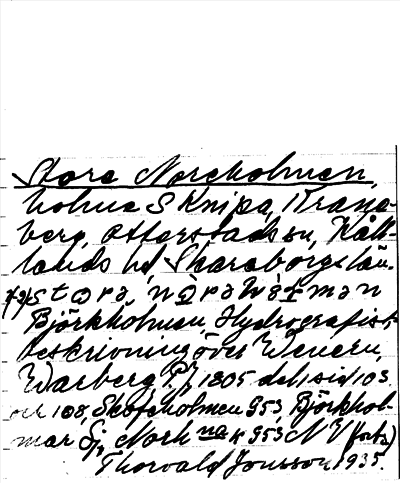 Stora Noreholmen,
holme S Knipa, Trane-
berg, Otterstads sn, Kål-
lands hd, Skaraborgs län.
Björkholmen, Hydrografisk
beskrivning över Wenern,
Warberg P. 1805 del 1 sid 103
och 108, Skogsholmen G53, Björkhol-
mar Sj, Nork na K G53 NV (forts)
Thorvald Jonsson 1935.